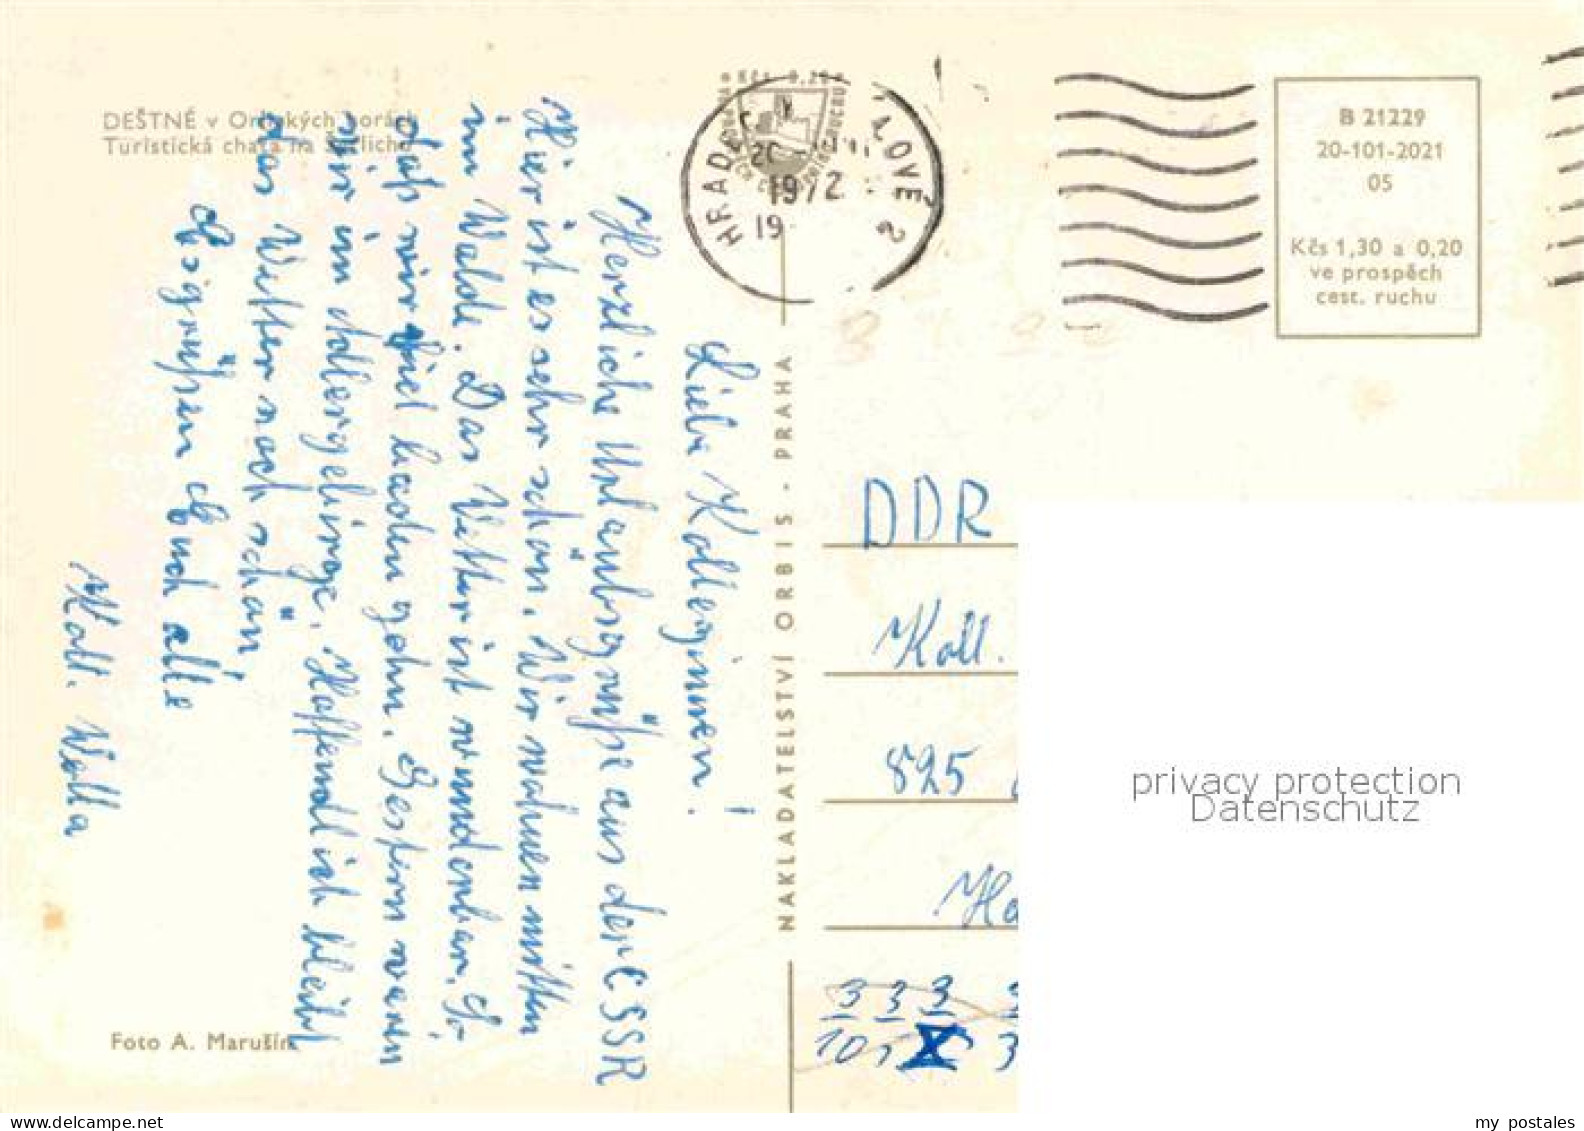 DEŠTNÉ v Orlických horách
Turistická chata na Šerlichu
Liebe Kolleginnen!
Herzliche Urlaubsgrüße aus der ČSSR
Hier ist es sehr schön. Wir wohnen mitten
im Walde. Das Wetter ist wunderbar. So
daß wir viel baden gehn. Gestern waren
wir im Adlergebirge. Hoffendlich bleibt
das Wetter noch schön.
Es grüßen Euch alle
Koll. Wolla
Foto A. Marušín
NAKLADATELSTVÍ ORBIS - PRAHA
Kčs 0,20
HRADEC KRÁLOVÉ 2
1972
19
B 21229
20-101-2021
05
Kčs 1,30 a 0,20
ve prospěch
cest. ruchu
DDR
Koll.
825
Ha
3 3 3
10,
privacy protection
Datenschutz
my postales